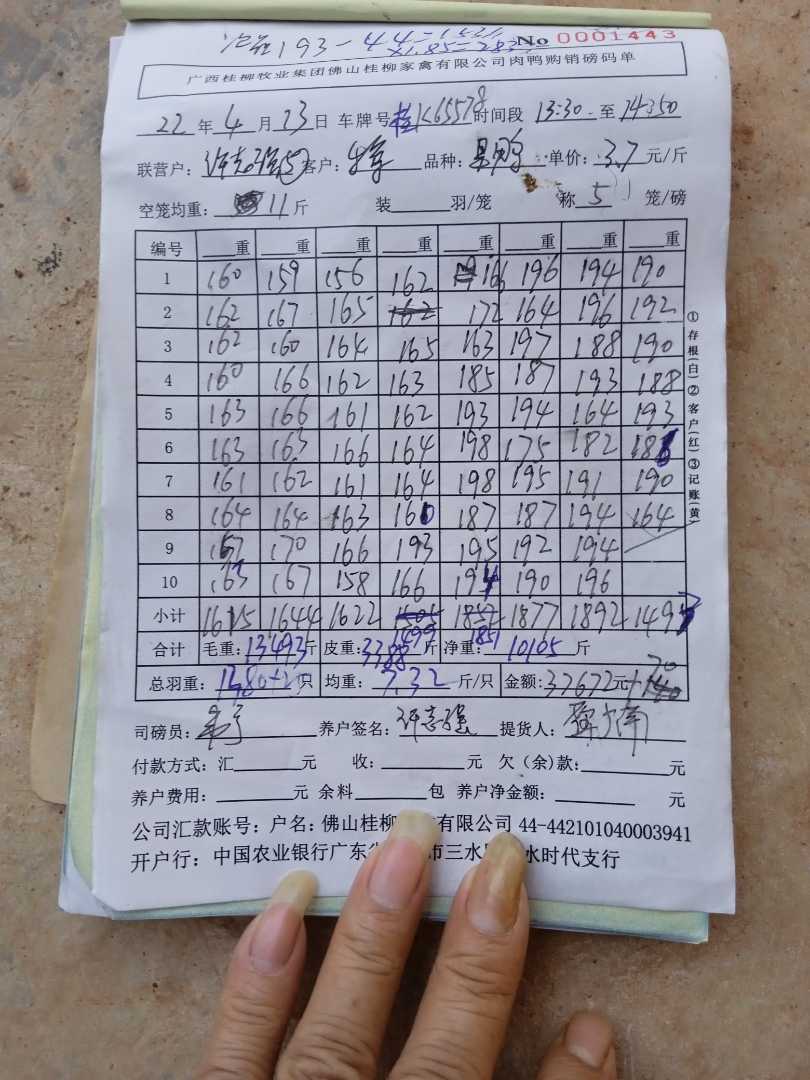 193-44=1511
×1.85=283
No 0001443
广西桂柳牧业集团佛山桂柳家禽有限公司肉鸭购销磅码单
22年4月23日 车牌号桂K65578时间段 13:30至14:50
联营户: 客户: 品种: 单价:3.7元/斤
空笼均重:11斤 装 羽/笼 称5笼/磅
编号 重 重 重 重 重 重 重 重
1 160 159 156 162 166 196 194 190
2 162 167 165 162 172 164 196 192
3 162 160 164 165 163 197 188 190
4 160 166 162 163 185 187 193 188
5 163 166 161 162 193 194 164 193
6 163 163 166 164 198 175 182 188
7 161 162 161 164 198 195 191 190
8 164 164 163 160 187 187 194 164
9 157 170 166 193 195 192 194
10 163 167 158 166 194 190 196
小计 1615 1644 1622 1499 1851 1877 1892 1495
合计 毛重:13493斤 皮重:3388斤 净重:10105斤
总羽重:1380+20只 均重:7.32斤/只 金额:37672元+70
司磅员: 养户签名:许志强 提货人:
付款方式:汇 元 收: 元 欠(余)款: 元
养户费用: 元 余料 包 养户净金额: 元
公司汇款账号:户名:佛山桂柳 有限公司 44-442101040003941
开户行:中国农业银行广东 市三水 水时代支行
①存根(白)②客户(红)③记账(黄)